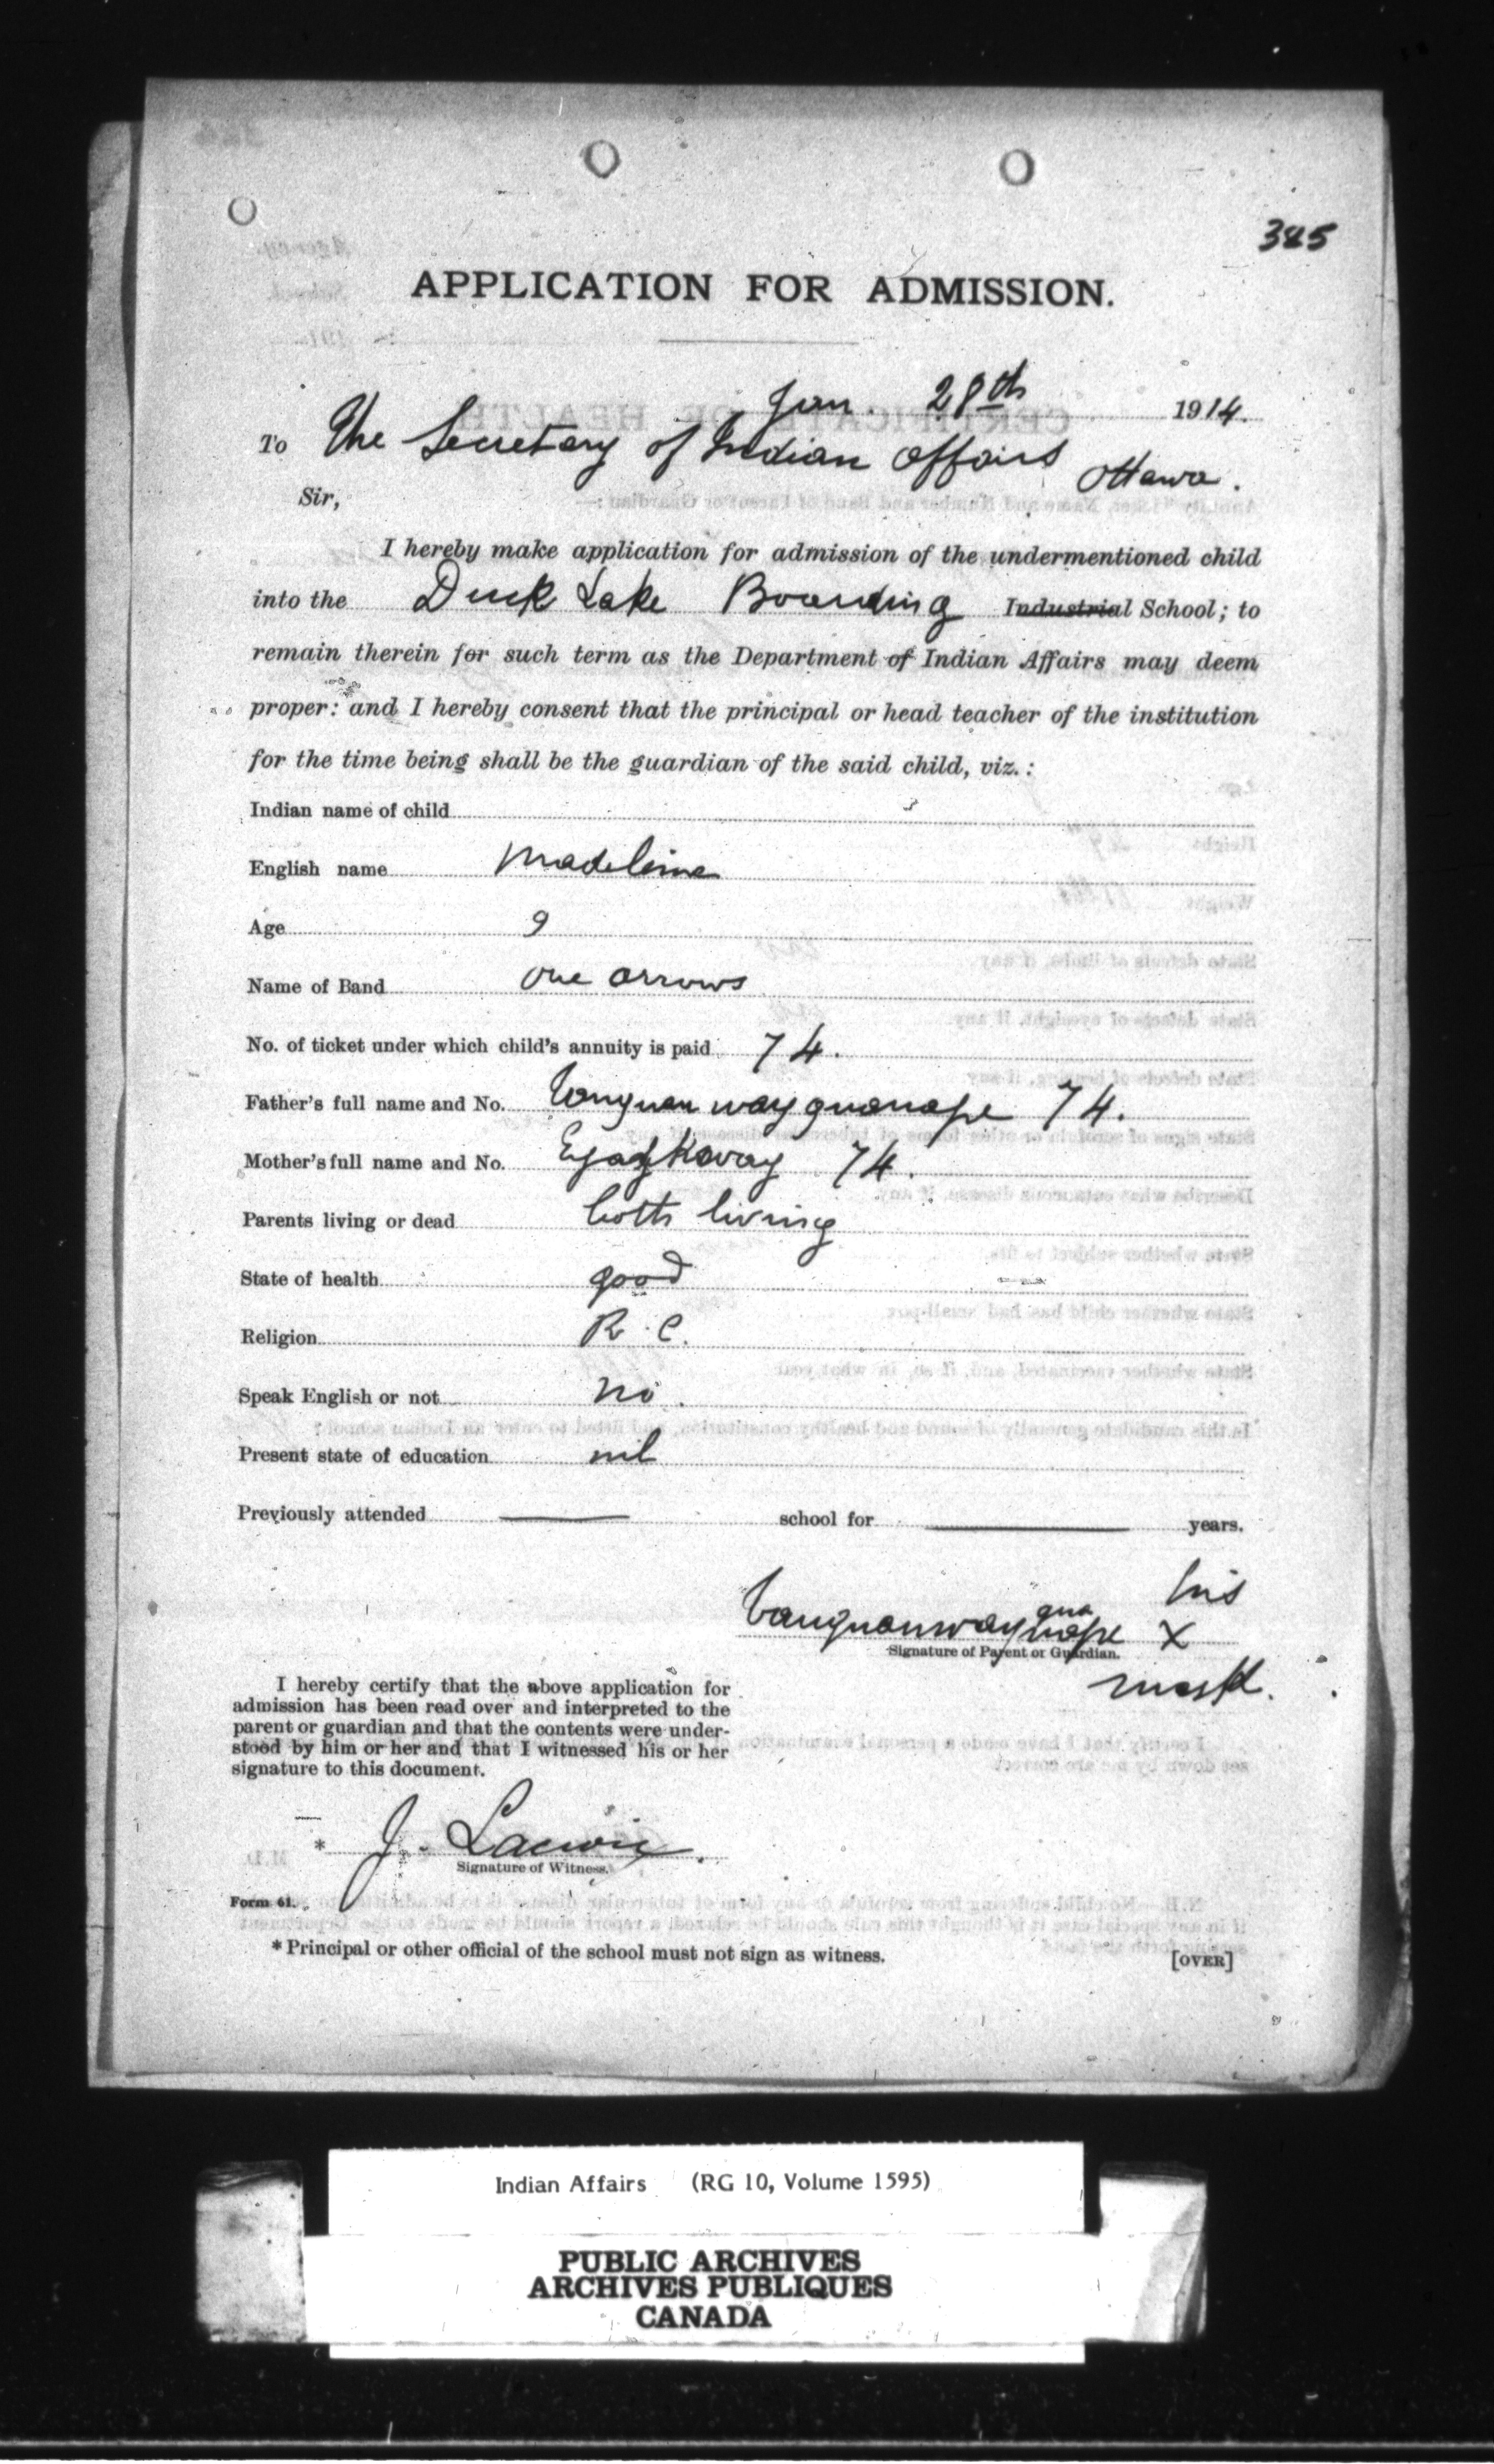 385
APPLICATION FOR ADMISSION.
Jan. 28th 1914.
To The Secretary of Indian Affairs Ottawa.
Sir,
I hereby make application for admission of the undermentioned child
into the Duck Lake Boarding Industrial School; to
remain therein for such term as the Department of Indian Affairs may deem
proper: and I hereby consent that the principal or head teacher of the institution
for the time being shall be the guardian of the said child, viz.:
Indian name of child
English name Madeleine
Age 9
Name of Band One Arrows
No. of ticket under which child's annuity is paid 74.
Father's full name and No. 74.
Mother's full name and No. 74.
Parents living or dead both living
State of health good
Religion R.C.
Speak English or not no.
Present state of education nil
Previously attended — school for — years.
his
X
Signature of Parent or Guardian.
mark.
I hereby certify that the above application for
admission has been read over and interpreted to the
parent or guardian and that the contents were under-
stood by him or her and that I witnessed his or her
signature to this document.
* J.
Signature of Witness.
Form 61.
* Principal or other official of the school must not sign as witness.
[OVER]
Indian Affairs (RG 10, Volume 1595)
PUBLIC ARCHIVES
ARCHIVES PUBLIQUES
CANADA